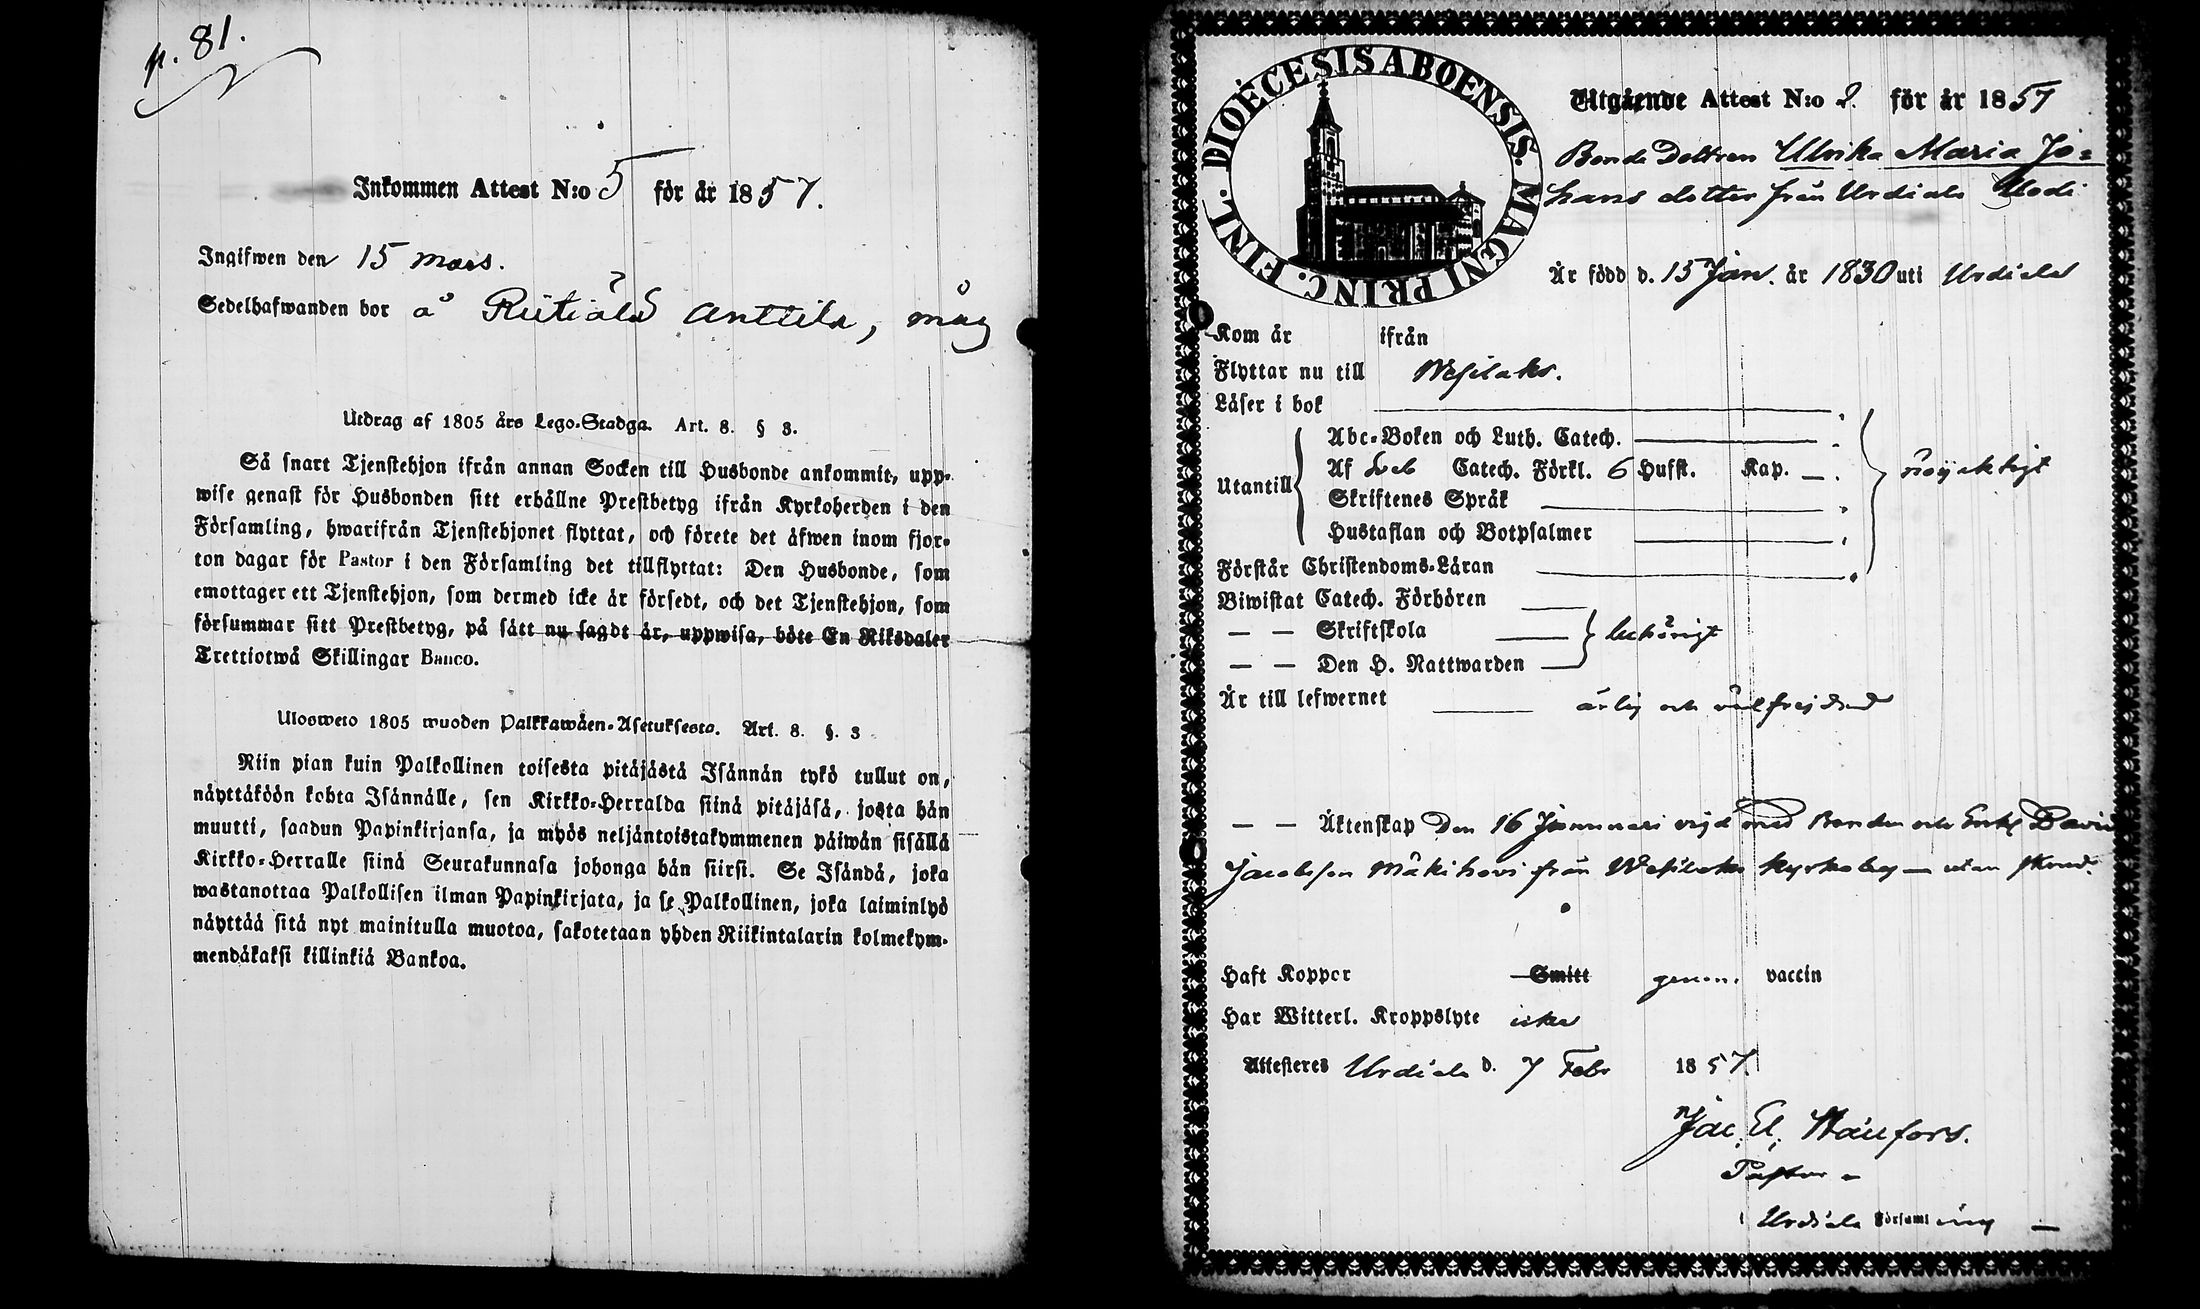 p. 81.
Inkommen Attest N:o 5 för år 1857.
Ingifwen den 15 mars.
Sedelhafwanden bor å Rütiälä Anttila, måg
Utdrag af 1805 års Lego-Stadga. Art. 8. § 3.
Så snart Tjenstehjon ifrån annan Socken till Husbonde ankommit, upp-
wise genast för Husbonden sitt erhållne Prestbetyg ifrån Kyrkoherden i den
Församling, hwarifrån Tjenstehjonet flyttat, och förete det äfwen inom fjor-
ton dagar för Pastor i den Församling det tillflyttat: Den Husbonde, som
emottager ett Tjenstehjon, som dermed icke är försedt, och det Tjenstehjon, som
försummar sitt Prestbetyg, på sätt nu sagdt är, uppwisa, böte En Riksdaler
Trettiotwå Skillingar Banco.
Ulosweto 1805 wuoden Palkkawäen-Asetuksesta. Art. 8. §. 3
Niin pian kuin Palkollinen toisesta pitäjästä Isännän tykö tullut on,
näyttäköön kohta Isännälle, sen Kirkko-Herralda siinä pitäjäsä, josta hän
muutti, saadun Papinkirjansa, ja myös neljäntoistakymmenen päiwän sisällä
Kirkko-Herralle siinä Seurakunnasa johonga hän siirsi. Se Isändä, joka
wastanottaa Palkollisen ilman Papinkirjata, ja se Palkollinen, joka laiminlyö
näyttää sitä nyt mainitulla muotoa, sakotetaan yhden Riikintalarin kolmekym-
mendäkaksi killinkiä Bankoa.
DIOECESIS ABOENSIS. MAGNI PRINC. FINL.
Utgående Attest N:o 2. för år 1857
Bonde Dottren Ulrika Maria Jo-
hans dotter från Urdiala
Är född d. 15 Jan. år 1830 uti Urdiala
Kom år ifrån
Flyttar nu till Wesilaks.
Läser i bok
Abc-Boken och Luth. Catech.
Af Catech. Förkl. 6 Hufst. Kap. —.
Utantill
Skriftenes Språk
Hustaflan och Botpsalmer
nöjaktigt
Förstår Christendoms-Läran
Biwistat Catech. Förhören
— — Skriftskola
behörigt
— — Den H. Nattwarden
Är till lefwernet ärlig och välfrejdad
— — Äktenskap Den 16 Januari vigd med Bonden och Enkl David
Jacobsson Mäkihovi från Wesilaks kyrkoby — utan
Haft Koppor Smitt genom vaccin
Har Witterl. Kroppslyte icke
Attesteres Urdiala d. 7 Febr 1857.
Jac. El. Stålfors.
Pastor
i Urdiala Församling —